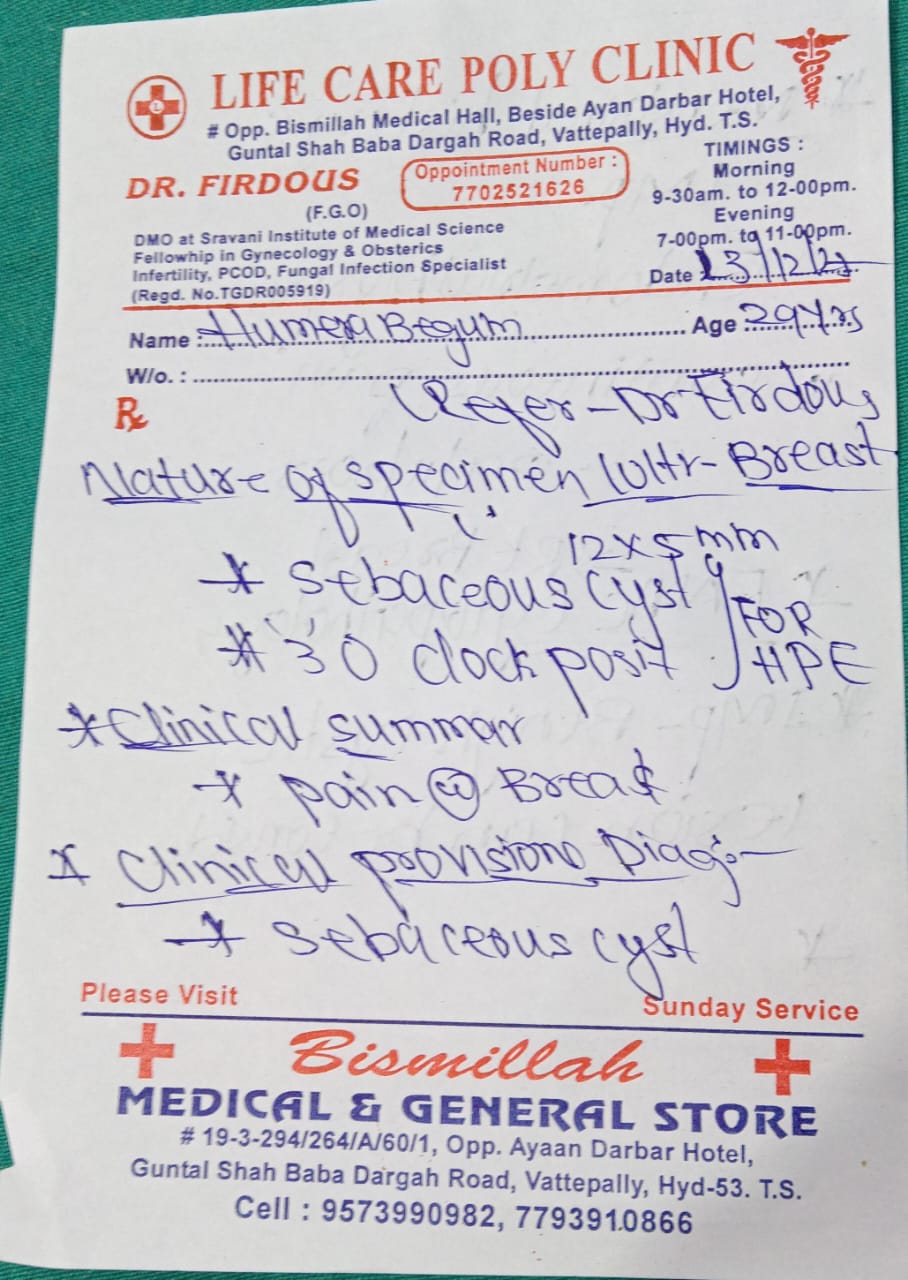 LIFE CARE POLY CLINIC
# Opp. Bismillah Medical Hall, Beside Ayan Darbar Hotel,
Guntal Shah Baba Dargah Road, Vattepally, Hyd. T.S.
DR. FIRDOUS
(F.G.O)
DMO at Sravani Institute of Medical Science
Fellowhip in Gynecology & Obsterics
Infertility, PCOD, Fungal Infection Specialist
(Regd. No.TGDR005919)
Appointment Number :
7702521626
TIMINGS :
Morning
9-30am. to 12-00pm.
Evening
7-00pm. to 11-00pm.
Date
Name : Humera Begum Age 29 Yrs
W/o. :
Rx
Refer - Dr Firdous
Nature of specimen - Breast
12x5 mm
* Sebaceous cyst
FOR
# 30 clock posit
HPE
* Clinical summar
* pain @ Breast
* Clinical Diag:-
* Sebaceous cyst
Please Visit Sunday Service
Bismillah
MEDICAL & GENERAL STORE
# 19-3-294/264/A/60/1, Opp. Ayaan Darbar Hotel,
Guntal Shah Baba Dargah Road, Vattepally, Hyd-53. T.S.
Cell : 9573990982, 7793910866